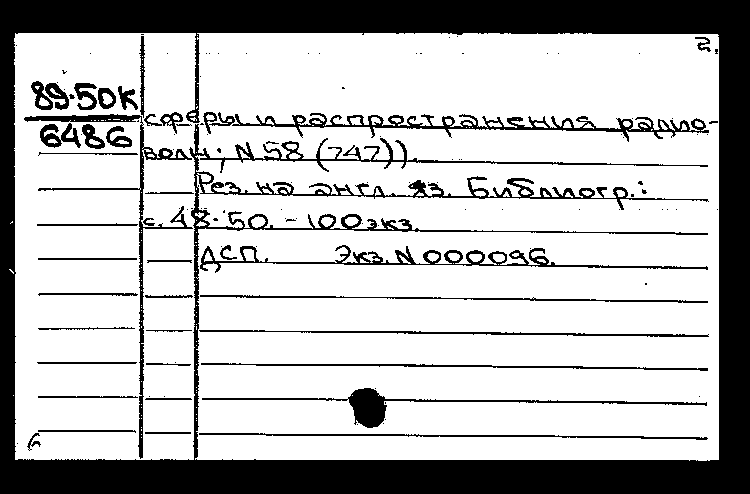 2.
89-50к
6486
сферы и распространения радио-
волн; N 58 (747)).
Рез. на англ. яз. Библиогр.:
с. 48-50. - 100 экз.
ДСП. Экз. N 000096.
6